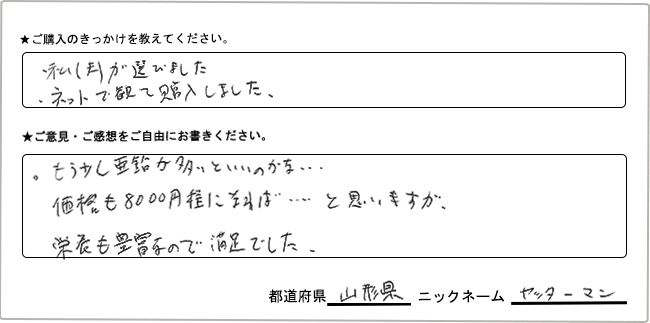 ★ご購入のきっかけを教えてください。
・私(夫)が選びました
・ネットで観て購入しました。
★ご意見・ご感想をご自由にお書きください。
。もう少し亜鉛が多いといいのかな・・・
価格も8000円程になれば・・・・と思いますが、
栄養も豊富なので満足でした。
都道府県 山形県 ニックネーム ヤッターマン